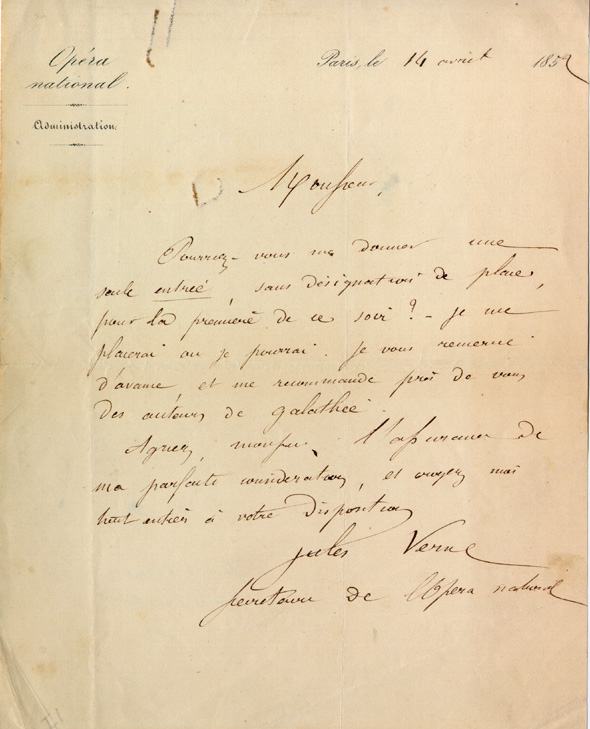 Opéra
national.
Administration.
Paris, le 14 avril 1852
Monsieur,
Pourriez-vous me donner une
seule entrée, sans désignation de place,
pour la première de ce soir ? - je me
placerai où je pourrai. Je vous remercie
d'avance et me recommande près de vous
des auteurs de galathée.
Agréez, monsieur, l'assurance de
ma parfaite considération, et croyez moi
tout entier à votre disposition
Jules Verne
secrétaire de l'Opéra national